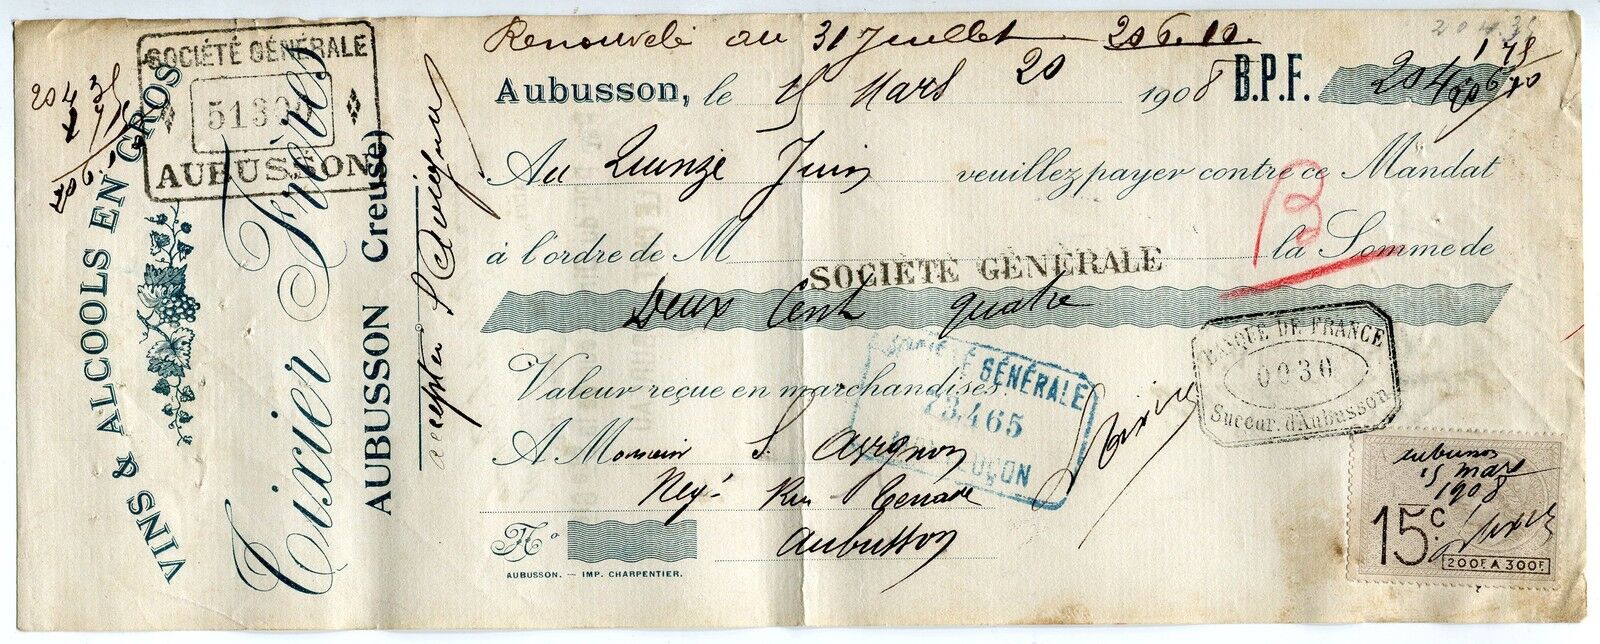 Renouvelé au 31 Juillet 206.10
Aubusson, le 15 Mars 20 1908 B.P.F. 204
Au Quinze Juin veuillez payer contre ce Mandat
à l'ordre de M SOCIÉTÉ GÉNÉRALE la Somme de
Deux Cent quatre
Valeur reçue en marchandises.
A Monsieur S. Avignon
Négt Rue
Aubusson
No
AUBUSSON. — IMP. CHARPENTIER.
VINS & ALCOOLS EN GROS
Tixier Frères
AUBUSSON (Creuse)
accepter S Avignon
SOCIÉTÉ GÉNÉRALE
AUBUSSON
204 35
1 75
206.10
204.35
B
SOCIÉTÉ GÉNÉRALE
73465
BANQUE DE FRANCE
0030
Succur. d'Aubusson
Aubusson
15 mars
1908
15c.
200F. A 300F.